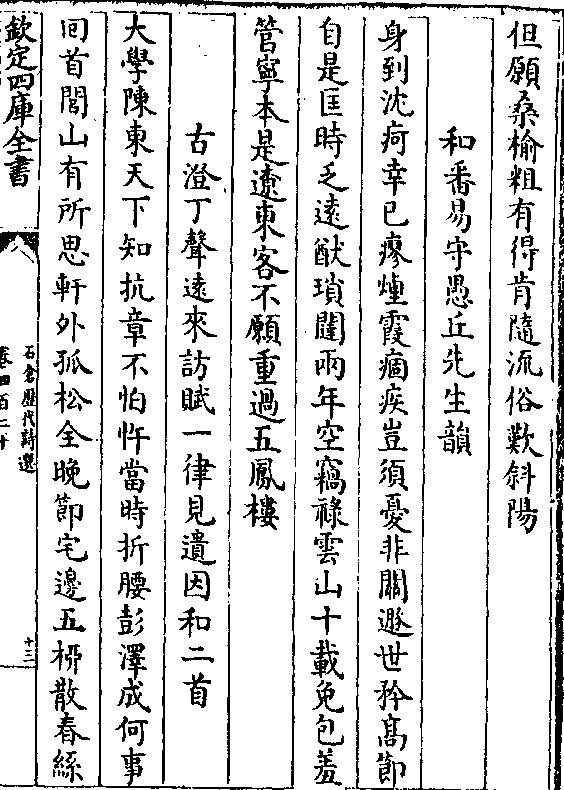 但願桑榆粗有得肯隨流俗歎斜陽
和番易守愚丘先生韻
身到沈疴幸已瘳煙霞痼疾豈須憂非關遯世矜髙節
自是匡時乏逺猷瑣闥兩年空竊祿雲山十載免包羞
管寧本是遼東客不願重過五鳳樓
古澄丁聲逺來訪賦一律見遺因和二首
大學陳東天下知抗章不怕忤當時折腰彭澤成何事
囘首閭山有所思軒外孤松全晚節宅邊五栁散春絲
欽定四庫全書
石倉歴代詩選
卷四百二十
十三